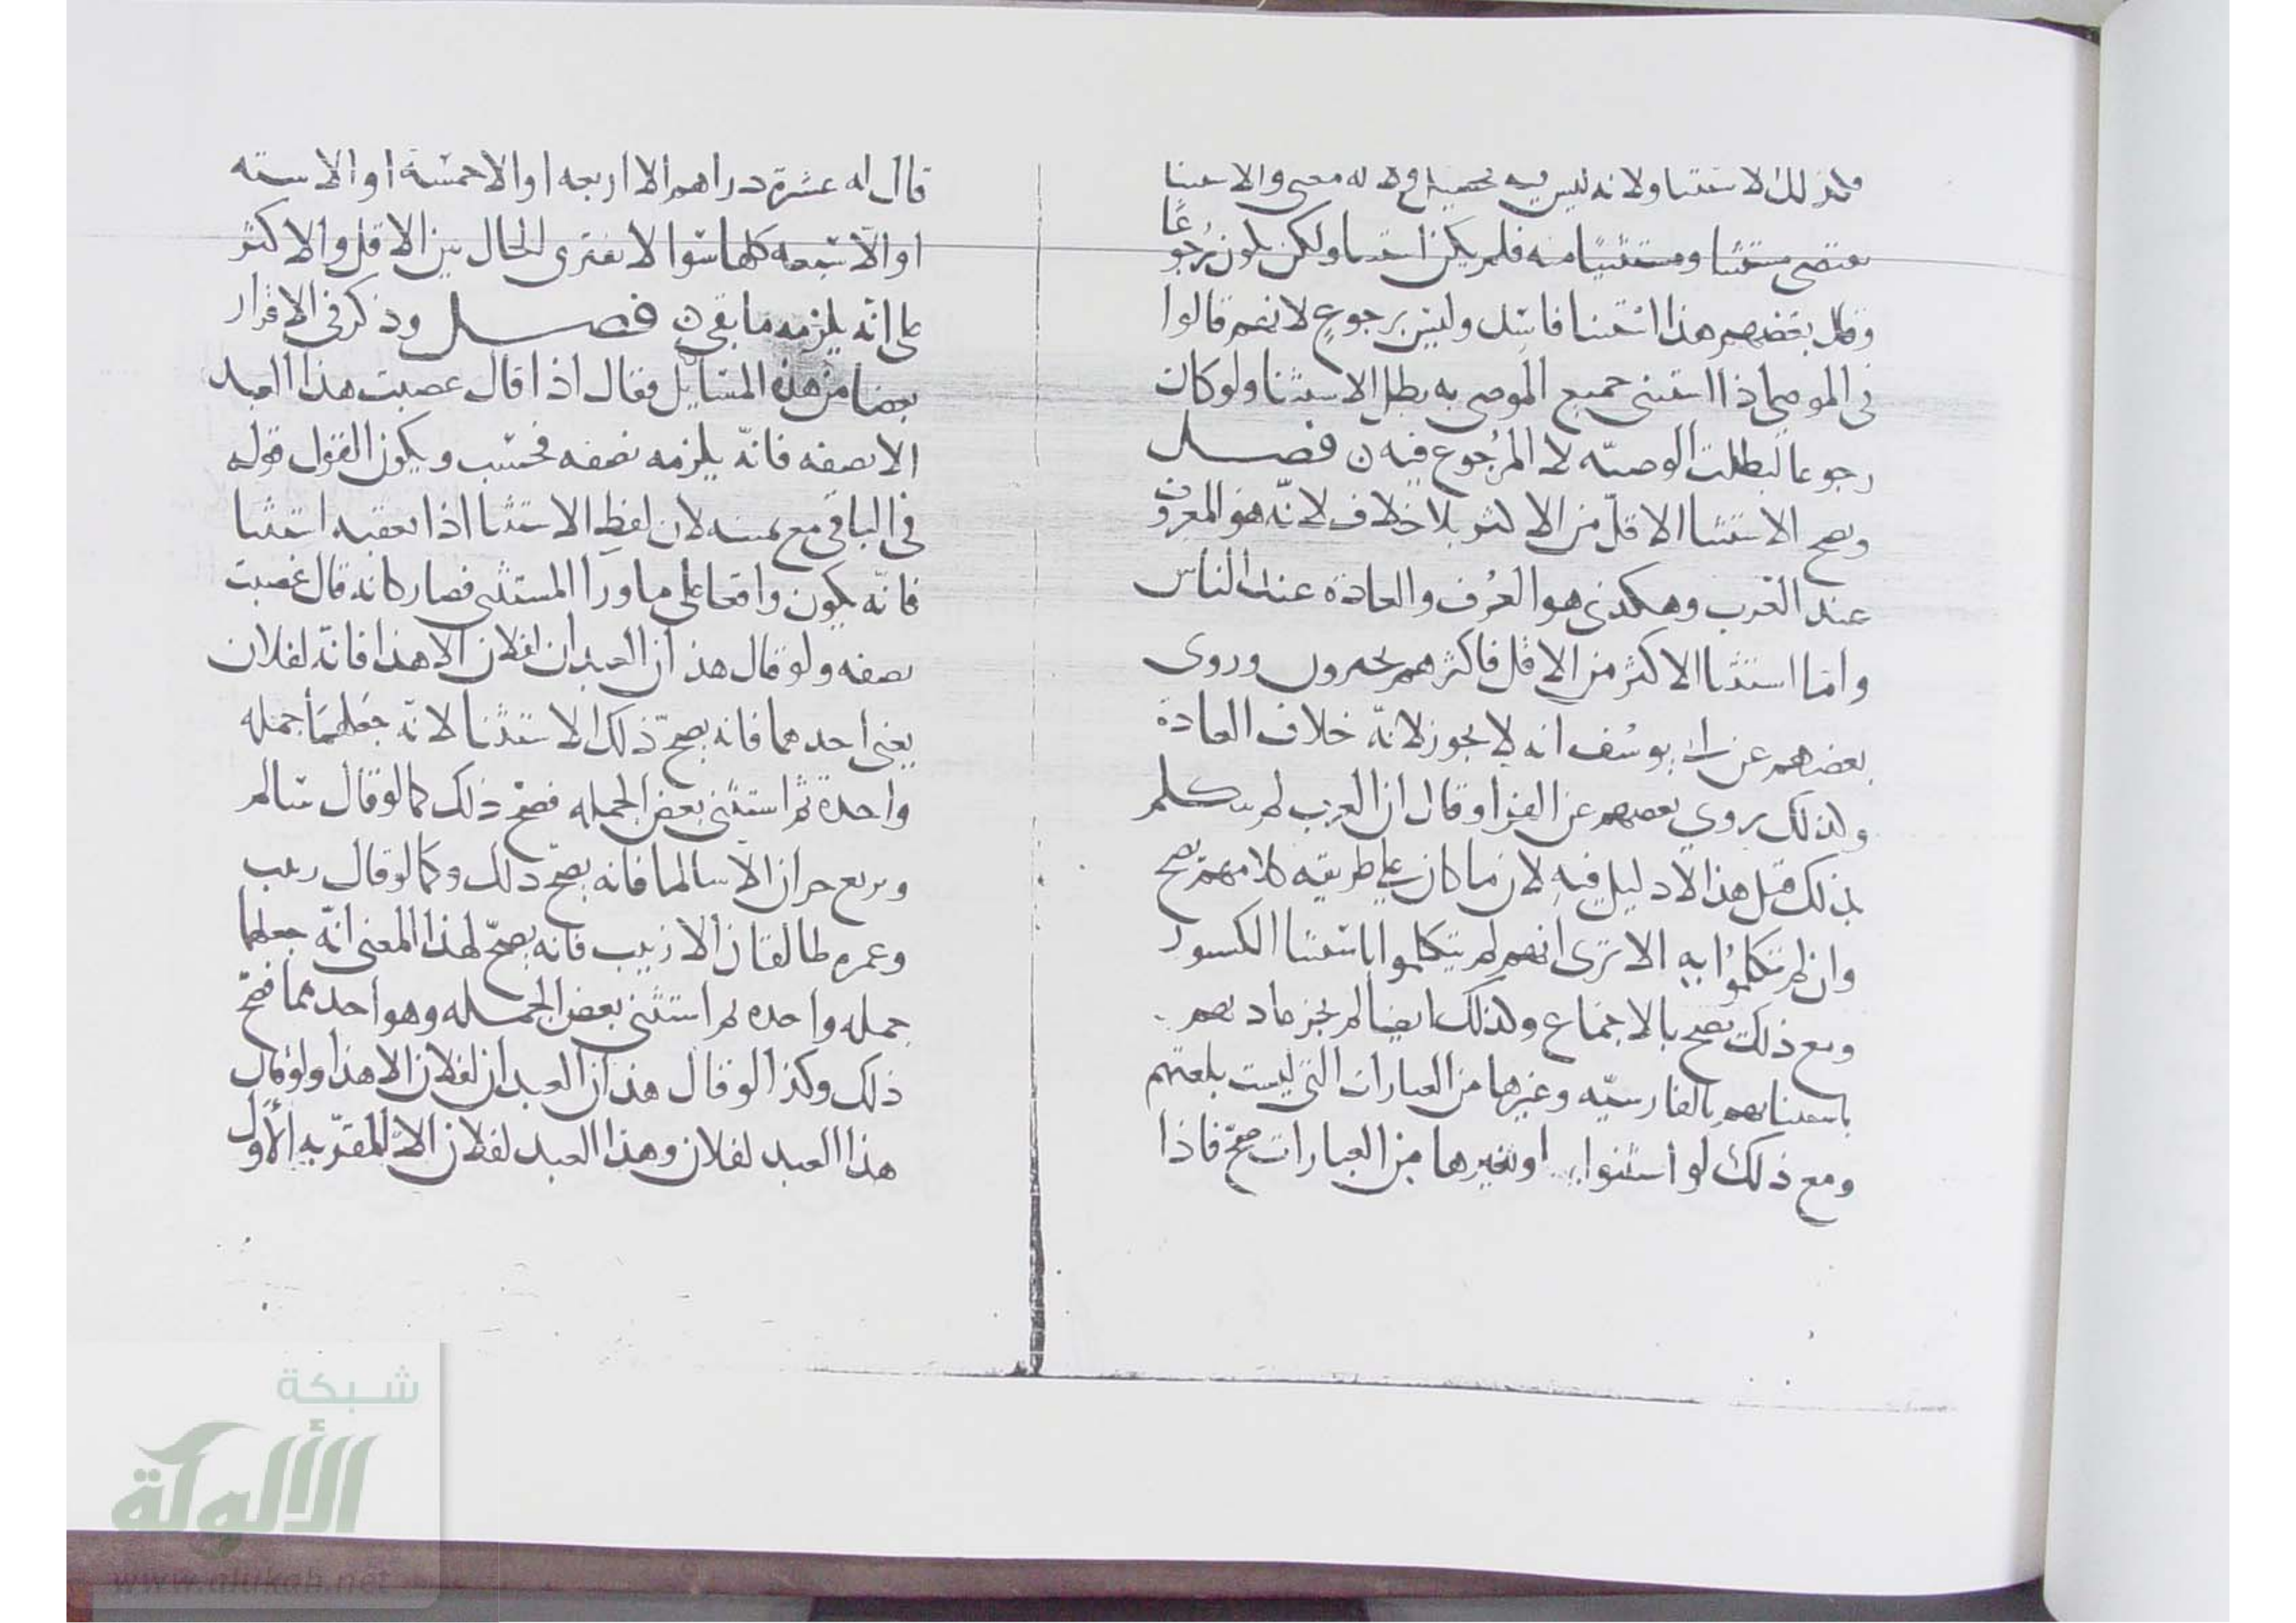 فلذلك الاستثنا ولانه ليس فيه معنى والاستثنا
يقتضي مستثنا ومستثنيا منه فلم يكن استثنا ولكن يكون رجوعًا
وقال بعضهم هذا استثنا فاسد وليس برجوع لانهم قالوا
في الموصي اذا استثنى جميع الموصى به بطل الاستثنا ولو كان
رجوعا لبطلت الوصيّه لا المرجوع فيه ن فصل
ويصح الاستثنا الاقلّ من الاكثر بلا خلاف لانّه هو المعروف
عند العرب وهكذى هو العُرف والعادة عند الناس
واما استثنا الاكثر من الاقل فاكثرهم يجيزون وروى
بعضهم عن ابي يوسُف انه لا يجوز لانّه خلاف العادة
ولذلك يروي بعضهم عن الفرا وقال ان العرب لم تتكلم
بذلك قيل هذا لا دليل فيه لان ما كان على طريقة كلامهم يصح
وان لم يتكلمُوا به الا ترى انهم لم يتكلموا باستثنا الكسور
ومع ذلك يصح بالاجماع ولذلك ايضا لم تجز عادتهم
باستثنائهم بالفارسيّه وغيرها من العبارات التي ليست بلغتهم
ومع ذلك لو استثنوا او بغيرها من العبارات صحّ فاذا
قال له عشرة دراهم الا اربعه او الا خمسة او الا سته
او الّا تسعه كلها سَوا لا يفترى الحال بين الاقل والاكثر
على انّه يلزمه ما بقي ن فصل وذكر في الاقرار
بعضا من هذه المسَايل فقال اذا قال غصبت هذا العبد
الا نصفه فانّه يلزمه نصفه فحسَب ويكون القول قوله
في الباقي مع يمينه لان لفظ الاستثنا اذا تعقبه استثنا
فانّه يكون واقعا على ما ورا المستثنى فصار كانه قال غصبت
نصفه ولو قال هذان العبدان لفلان الا هذا فانّه لفلان
يعني احدهما فانه يصحّ ذلك الاستثنا لانّه جَعلهمَا جمله
واحدة ثم استثنى بعض الجمله فصحّ ذلك كما لو قال سَالم
وبزيع حران الا سالما فانه يصحّ ذلك وكما لو قال زينب
وعمره طالقان الا زينب فانه يصحّ لهذا المعنى انّه جعلهما
جمله واحده ثم استثنى بعض الجمله وهو احدهما فصحّ
ذلك وكذا لو قال هذان العبدان لفلان الا هذا ولو قال
هذا العبد لفلان وهذا العبد لفلان الا المقرّ به الأوّل
شبكة
الألوكة
www.alukah.net